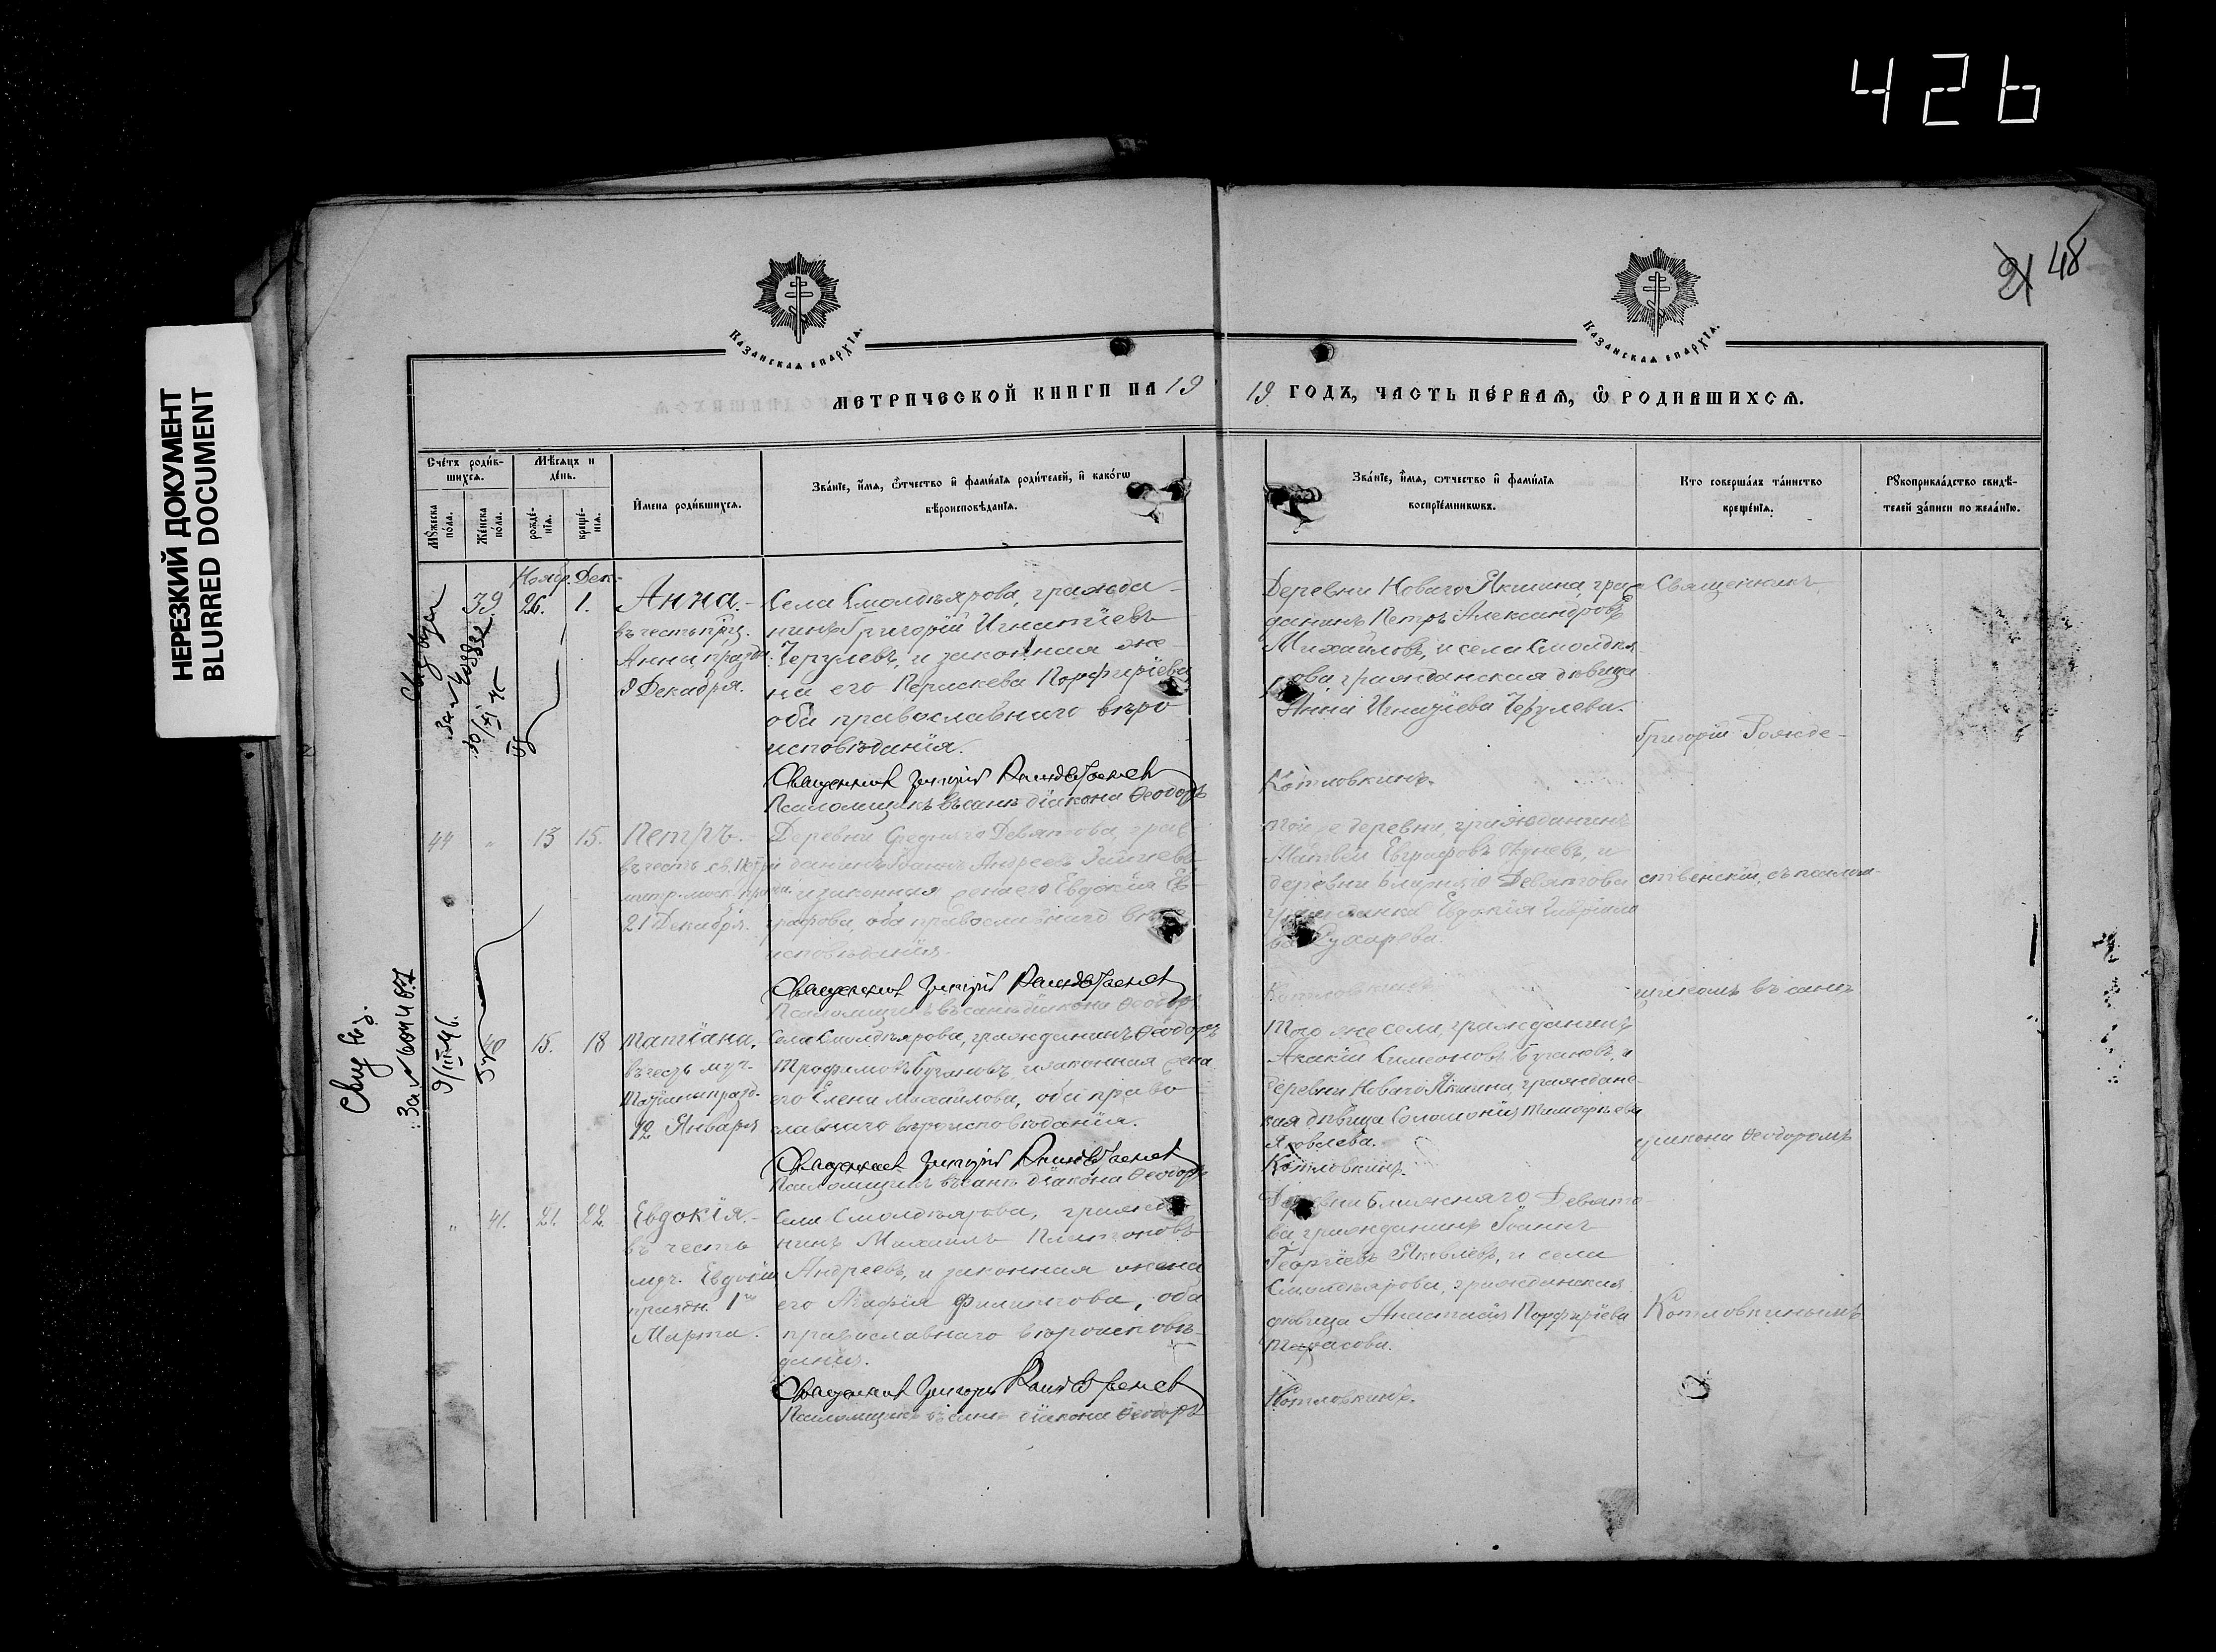 426
НЕРЕЗКИЙ ДОКУМЕНТ
BLURRED DOCUMENT
21 48
Казанская епархїя.
Казанская епархїя.
МЕТРИЧЕСКОЙ КНИГИ НА 19
19 ГОДЪ, ЧАСТЬ ПЕ́РВАЯ, Ѡ РОДИВШИХСЯ.
Сче́тъ роди́в-
шихся.
Мѣ́сяцъ и
де́нь.
Мꙋ́жеска
по́ла.
Же́нска
по́ла.
рожде́-
нїя.
креще́-
нїя.
И́мена роди́вшихся.
Зва́нїе, и́мя, ѻ́тчество и фами́лїя роди́телей, и како́гѡ
вѣроисповѣ́данїя.
Зва́нїе, и́мя, ѻтчество и фами́лїя
воспрїе́мникѡвъ.
Кто соверша́лъ та́инство
креще́нїя.
Рꙋкоприкла́дство свидѣ́-
телей за́писи по жела́нїю.
Нояб. Дек.
39. 26. 1.
Анна.
въ честь прц.
Анны празд.
9 Декабря.
Села Смолдѣярова, гражда-
нинъ Григорій Игнатіевъ
Черулевъ, и законная же-
на его Параскева Порфиріева
оба православнаго вѣро
исповѣданія.
Священникъ Григорій Рождественскій
Псаломщикъ въ санѣ діакона Ѳеодоръ
Деревни Новаго Якшина, гра-
данинъ Петръ Александровъ
Михайловъ, и села Смолдѣя
рова гражданская дѣвица
Анна Игнатіева Черулева.
Котловкинъ.
Священникъ
Григорій Рожде-
44 " 13 15.
Петръ.
въ честь св. Петра
митр. моск. празд.
21 Декабря.
Деревни Средняго Девятова, граж
данинъ Іоаннъ Андреевъ Зайцевъ
и законная жена его Евдокія Ев-
графова, оба православнаго вѣро
исповѣданія.
Священникъ Григорій Рождественскій
Псаломщикъ въ санѣ діакона Ѳеодоръ
Той же деревни, гражданинъ
Матвей Евграфовъ, и
деревни Ближняго Девятова
гражданка Евдокія Гавріило
ва Сухарева.
Котловкинъ
ственскій, съ псалом-
щикомъ въ санѣ
40 15. 18
Татіана,
въ честь муч.
Татіаны празд.
12 Января
Села Смолдѣярова, гражданинъ Ѳеодоръ
Трофимовъ Бугановъ и законная жена
его Елена Михайлова, оба право-
славнаго вѣроисповѣданія.
Священникъ Григорій Рождественскій
Псаломщикъ въ санѣ діакона Ѳеодоръ
Того же села гражданинъ
Акакій Симеоновъ Бугановъ, и
деревни Новаго Якшина граждан-
ская дѣвица Соломонія Тимоѳеева
Яковлева.
Котловкинъ.
діакона Ѳеодоромъ
" 41. 21. 22.
Евдокія.
въ честь
муч. Евдокіи
праздн. 1го
Марта.
Села Смолдѣярова, гражда
нинъ Михаилъ Платоновъ
Андреевъ, и законная жена
его Агафія Филиппова, оба
православнаго вѣроисповѣ-
данія.
Священникъ Григорій Рождественскій
Псаломщикъ въ санѣ діакона Ѳеодоръ
Деревни Ближняго Девято-
ва, гражданинъ Іоаннъ
Георгіевъ Яковлевъ, и села
Смолдѣярова, гражданская
дѣвица Анастасія Порфиріева
Тарасова.
Котловкинъ.
Котловкинымъ